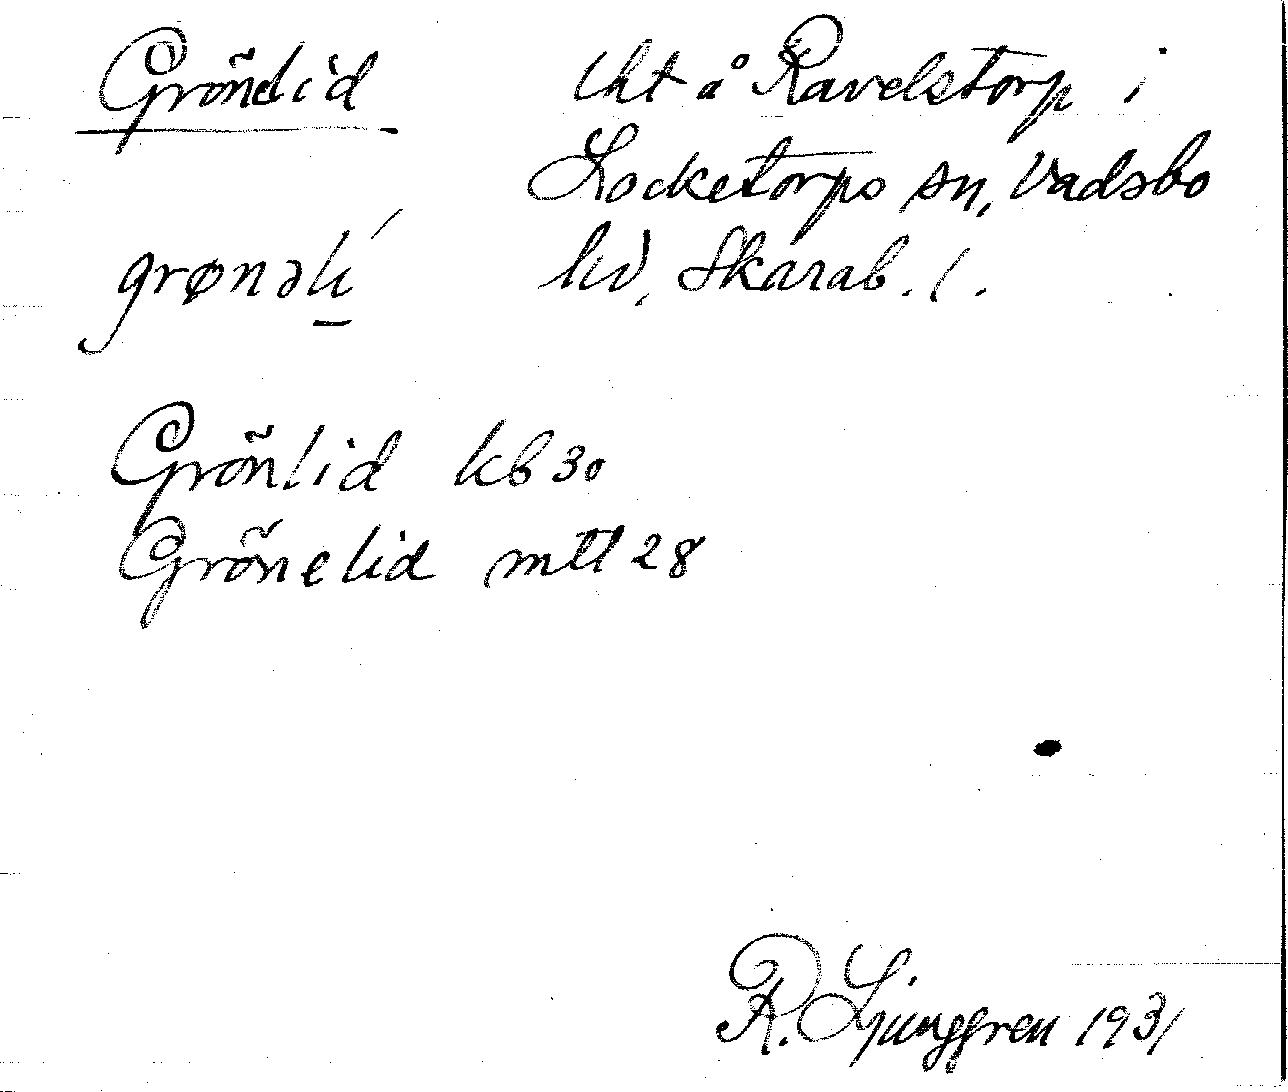 Grönelid lht å Ravelstorp i
Locketorps sn, Vadsbo
grønəlí hd, Skarab. l.
Grönlid kb 30
Grönelid mtl 28
R. Ljunggren 1931